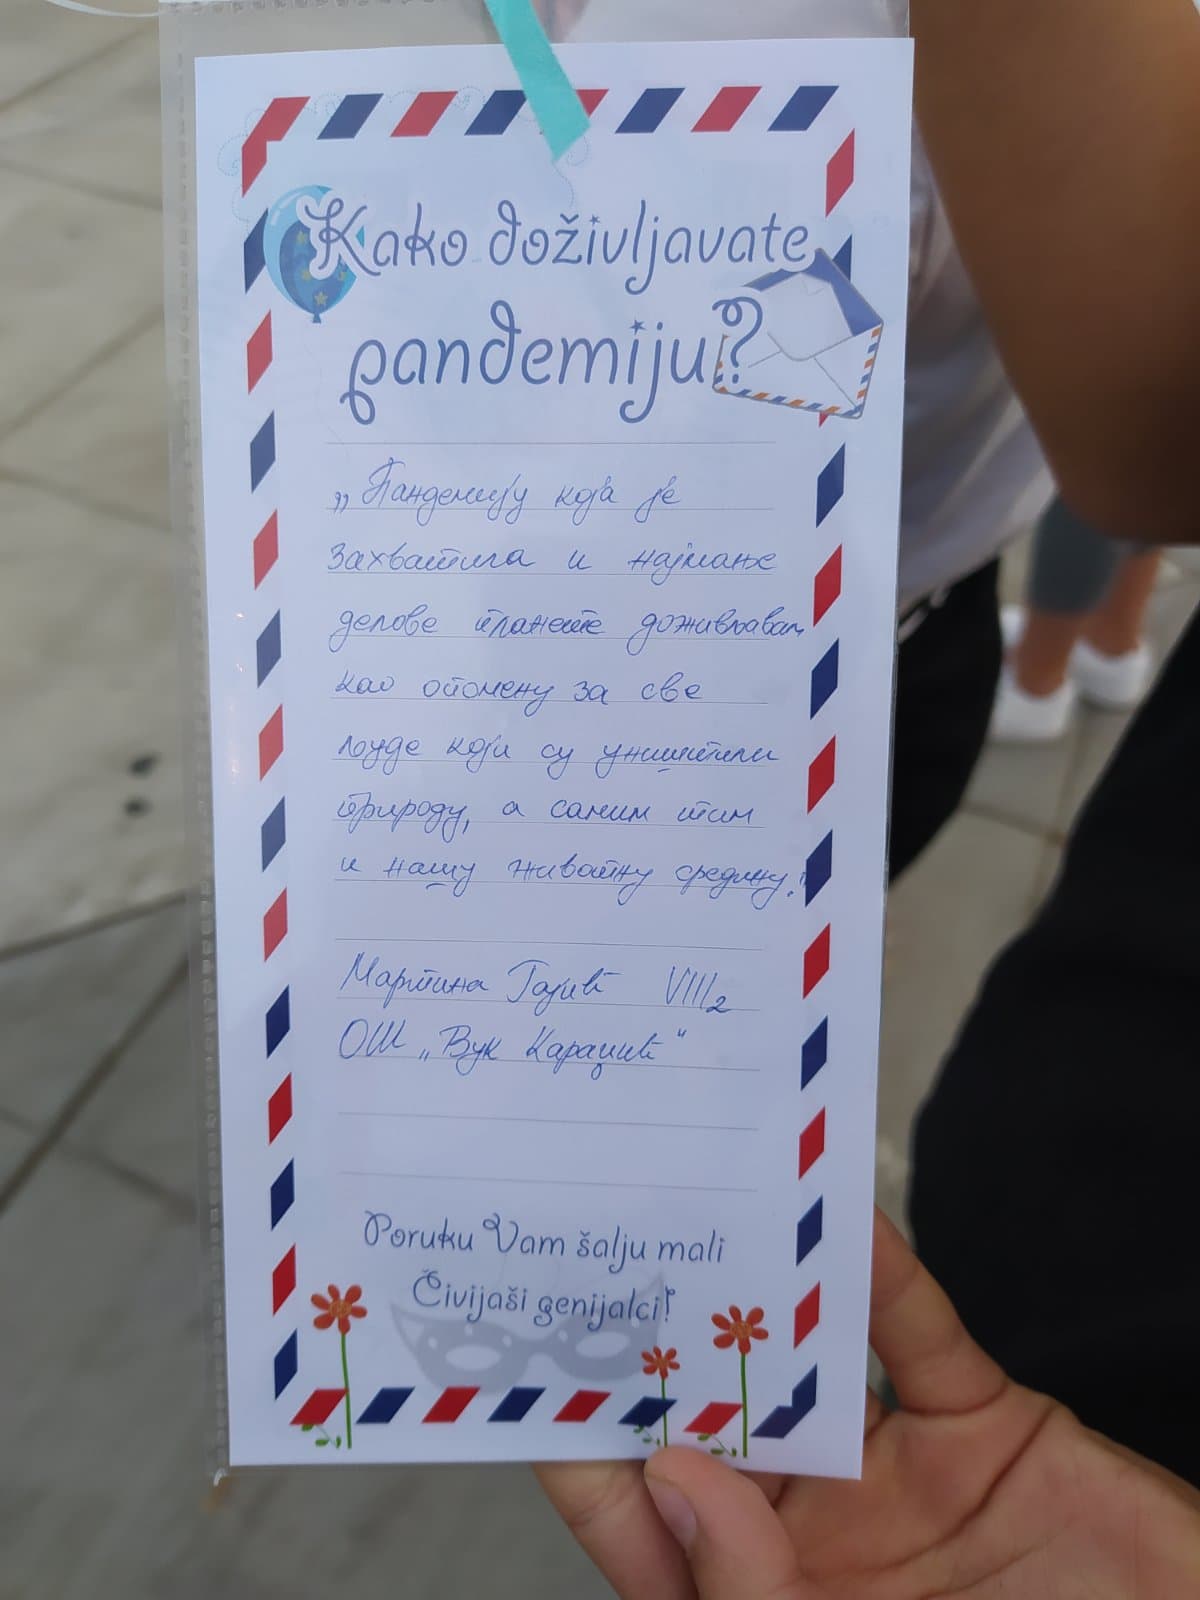 Kako doživljavate
pandemiju?
„Пандемију која је
захватила и најмање
делове планете доживљавам
као опомену за све
људе који су уништили
природу, а самим тим
и нашу животну средину."
Мартина Гајић VIII2
ОШ „Вук Караџић"
Poruku Vam šalju mali
Čivijaši genijalci!